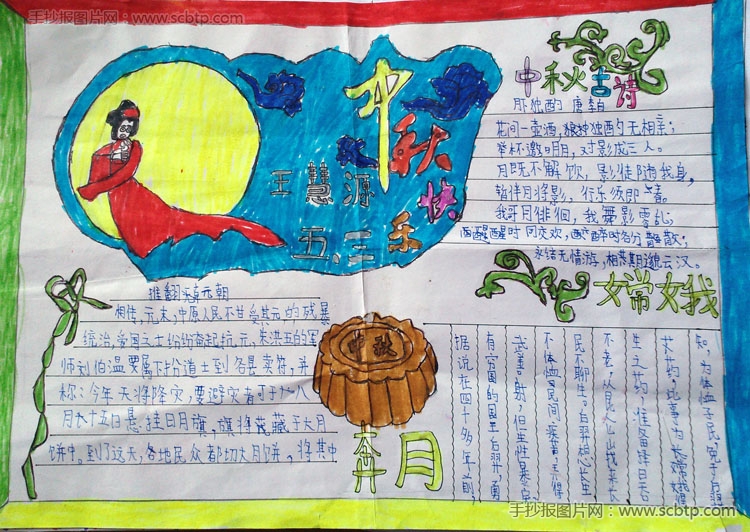 手抄报图片网 www.scbtp.com
中秋快乐
王慧源
五.三
中秋古诗
月独酌 唐 李白
花间一壶酒,独酌无相亲;
举杯邀明月,对影成三人。
月既不解饮,影徒随我身,
暂伴月将影,行乐须即春。
我哥月徘徊,我舞影零乱;
醒时同交欢,醉时各分散;
永结无情游,相期邈云汉。
推翻元朝
相传,元末,中原人民不甘受其元的残暴
统治,爱国之士纷纷奋起抗元,朱洪五的军
师刘伯温要属下扮道士到各县卖符,并
称:今年天将降灾,要避灾者可于八
月十五日悬挂日月旗,旗将藏于大月
饼中。到了这天,各地民众都切大月饼,将其中
中秋
嫦娥
奔月
据说在四千多年前
有穷国的国王后羿勇
武善射,但生性暴戾
不体恤民间疾苦
民不聊生,后羿想长生
不老
生之药,准备择日
手抄报图片网 www.scbtp.com